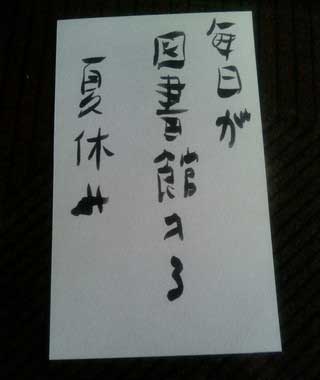 毎日が
図書館する
夏休み